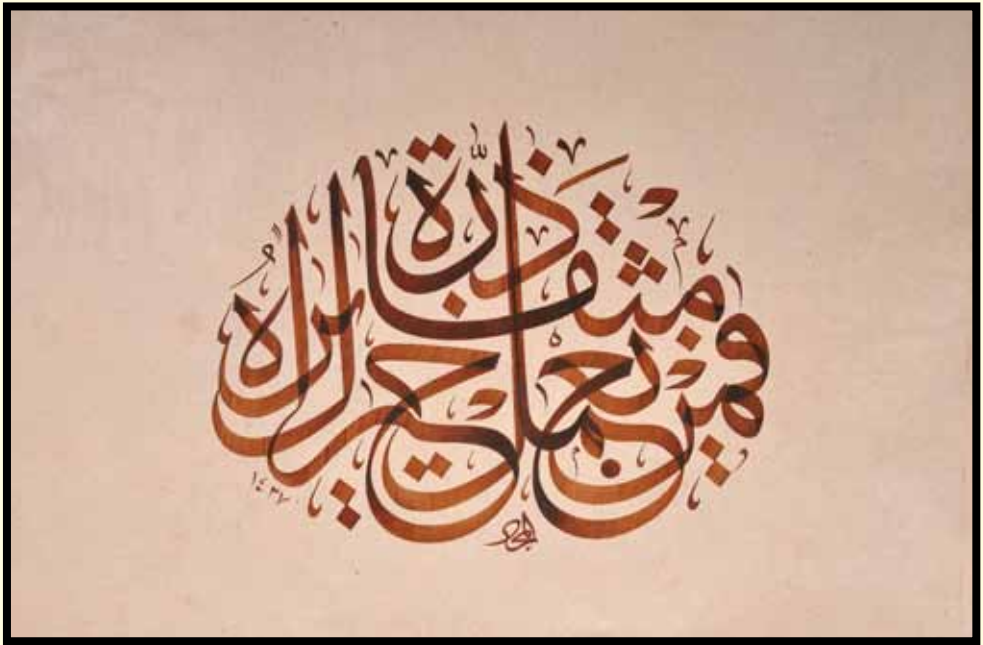 فمن يعمل مثقال ذرة خيرا يره
١٤٣٧